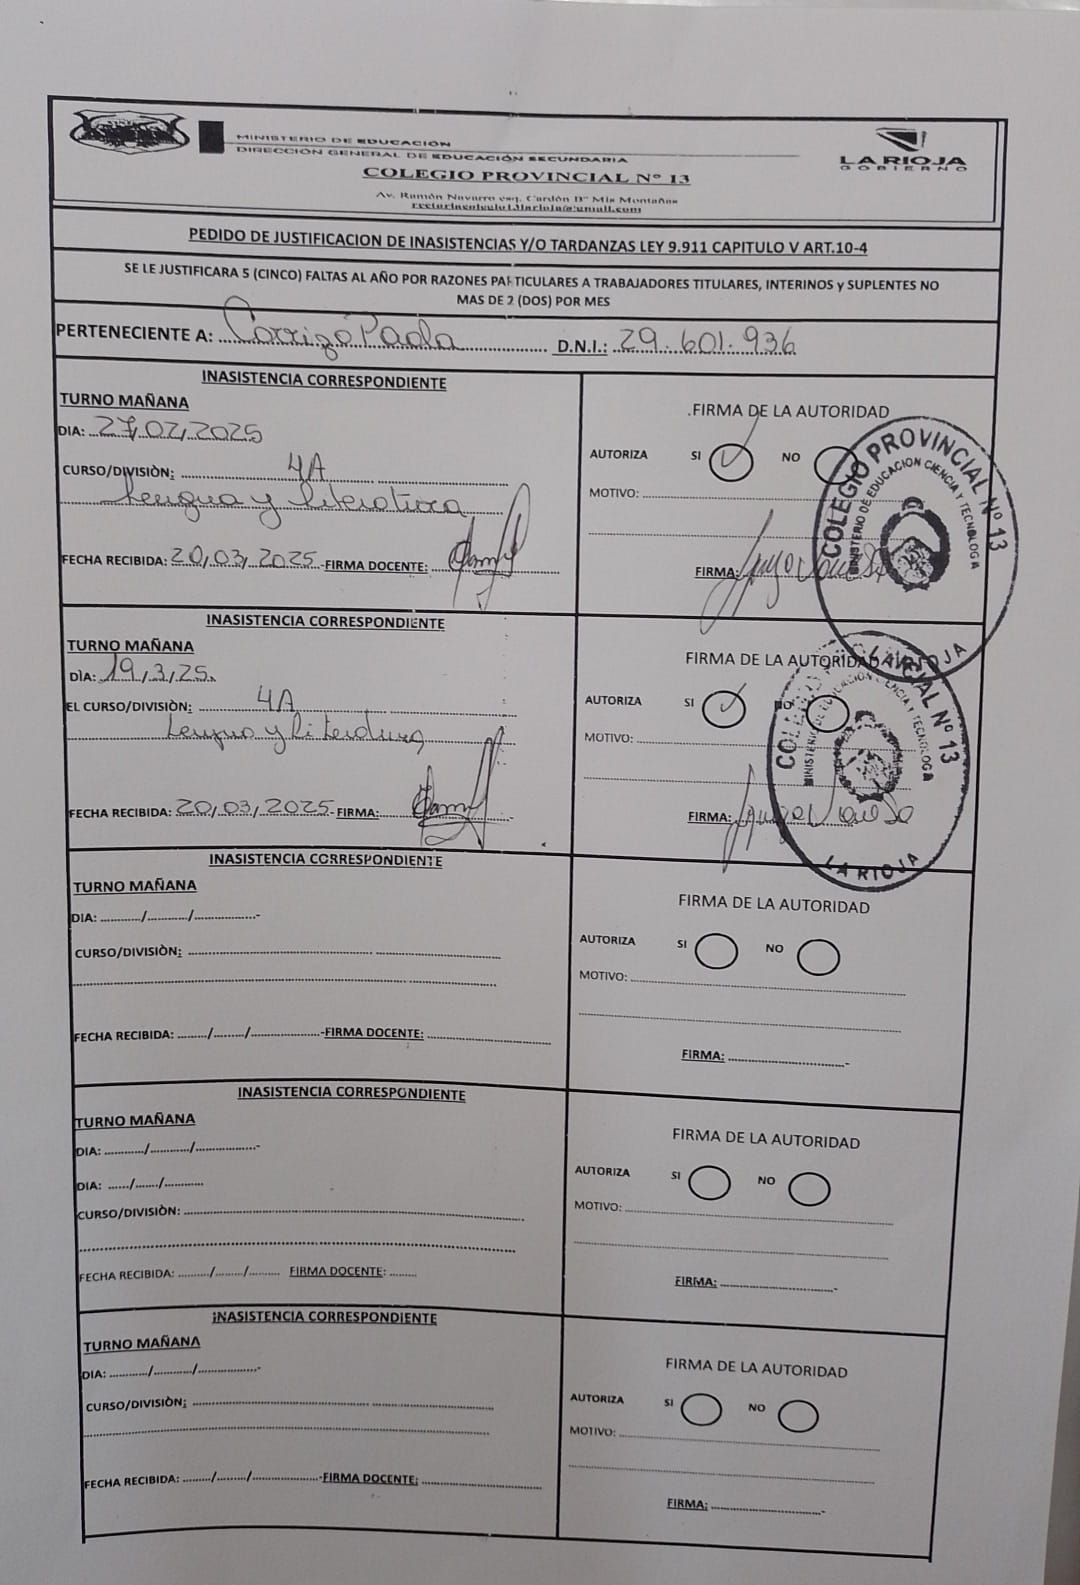 MINISTERIO DE EDUCACIÓN
DIRECCIÓN GENERAL DE EDUCACIÓN SECUNDARIA
COLEGIO PROVINCIAL Nº 13
Av. Ramón Navarro esq. Cardón Bº Mis Montañas
LA RIOJA
GOBIERNO
PEDIDO DE JUSTIFICACION DE INASISTENCIAS Y/O TARDANZAS LEY 9.911 CAPITULO V ART.10-4
SE LE JUSTIFICARA 5 (CINCO) FALTAS AL AÑO POR RAZONES PARTICULARES A TRABAJADORES TITULARES, INTERINOS y SUPLENTES NO
MAS DE 2 (DOS) POR MES
PERTENECIENTE A: Carrizo Paola D.N.I.: 29.601.936
INASISTENCIA CORRESPONDIENTE
TURNO MAÑANA
DIA: 27/02/2025
CURSO/DIVISIÒN: 4A
Lengua y literatura
FECHA RECIBIDA: 20/03/2025-FIRMA DOCENTE:
.FIRMA DE LA AUTORIDAD
AUTORIZA SI NO
MOTIVO:
FIRMA:
COLEGIO PROVINCIAL Nº 13
MINISTERIO DE EDUCACION CIENCIA Y TECNOLOGA
LA RIOJA
INASISTENCIA CORRESPONDIENTE
TURNO MAÑANA
DÌA: 19/3/25.
EL CURSO/DIVISIÒN: 4A
Lengua y literatura
FECHA RECIBIDA: 20/03/2025-FIRMA:
FIRMA DE LA AUTORIDAD
AUTORIZA SI NO
MOTIVO:
FIRMA:
LA RIOJA
INASISTENCIA CORRESPONDIENTE
TURNO MAÑANA
DIA: ........../........../................-
CURSO/DIVISIÒN:
FECHA RECIBIDA: ......../......../..................-FIRMA DOCENTE:
FIRMA DE LA AUTORIDAD
AUTORIZA SI NO
MOTIVO:
FIRMA:
INASISTENCIA CORRESPONDIENTE
TURNO MAÑANA
DIA: ........../........../................-
DIA: ....../....../..........
CURSO/DIVISIÒN:
FECHA RECIBIDA: ......../......../........ FIRMA DOCENTE: .......
FIRMA DE LA AUTORIDAD
AUTORIZA SI NO
MOTIVO:
FIRMA:
INASISTENCIA CORRESPONDIENTE
TURNO MAÑANA
DIA: ........../........../................-
CURSO/DIVISIÒN:
FECHA RECIBIDA: ......../......../..................-FIRMA DOCENTE:
FIRMA DE LA AUTORIDAD
AUTORIZA SI NO
MOTIVO:
FIRMA: